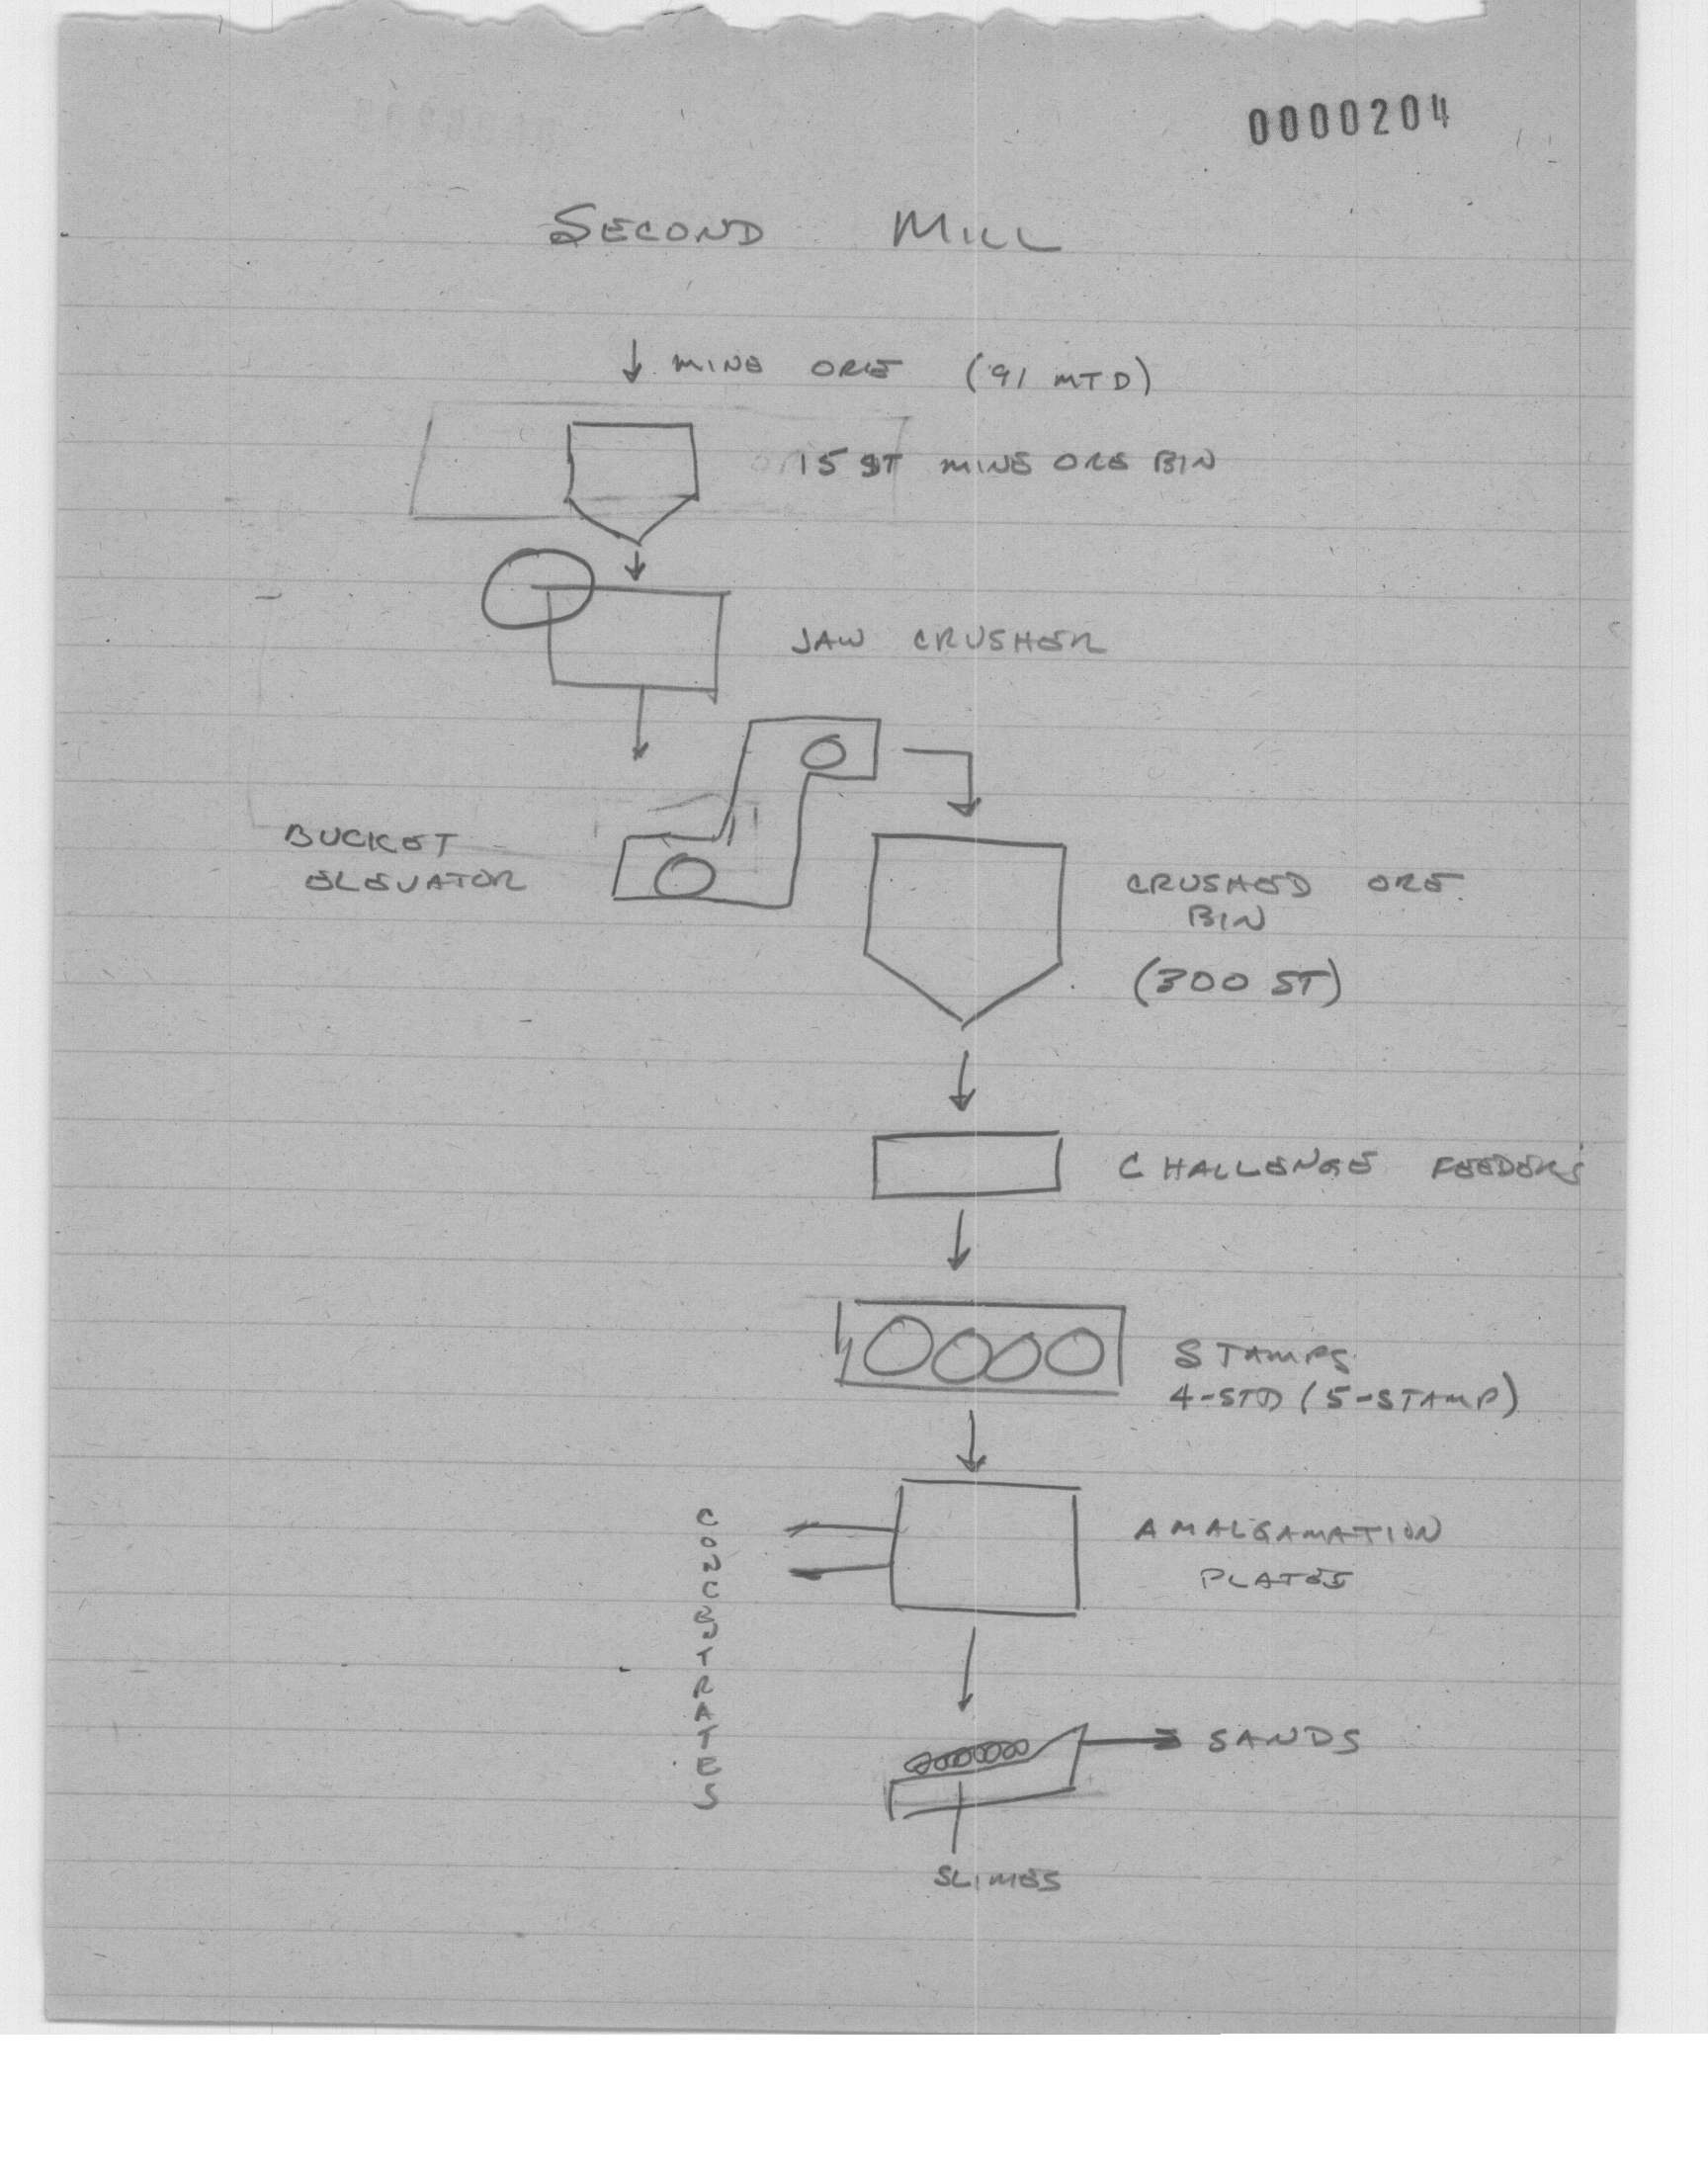 0000204
SECOND MILL
MINE ORE (91 MTD)
15 ST MINE ORE BIN
JAW CRUSHER
BUCKET
ELEVATOR
CRUSHED ORE
BIN
(300 ST)
CHALLENGE FEEDERS
STAMPS
4-STD (5-STAMP)
AMALGAMATION
PLATES
CONCENTRATES
SANDS
SLIMES